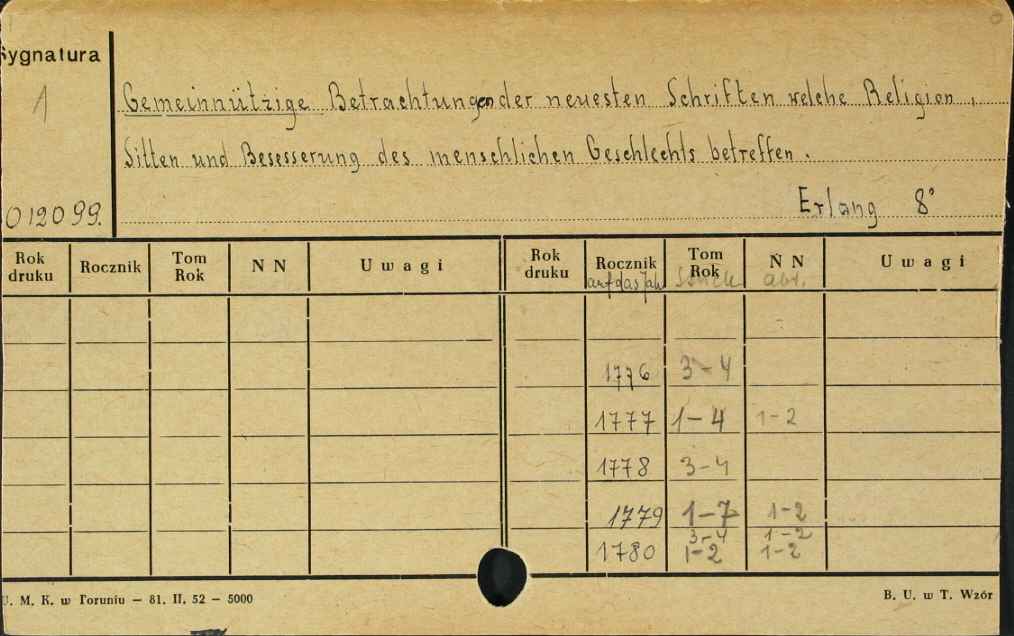 Sygnatura
1
012099.
Gemeinnützige Betrachtungen der neuesten Schriften welche Religion,
Sitten und Besesserung des menschlichen Geschlechts betreffen.
Erlang 8°
Rok druku Rocznik Tom Rok N N Uwagi Rok druku Rocznik Tom Rok N N Uwagi
auf das Jahr Stück abt.
1776 3-4
1777 1-4 1-2
1778 3-4
1779 1-7 1-2
3-4 1-2
1780 1-2 1-2
U. M. K. w Toruniu — 81. II. 52 — 5000 B. U. w T. Wzór